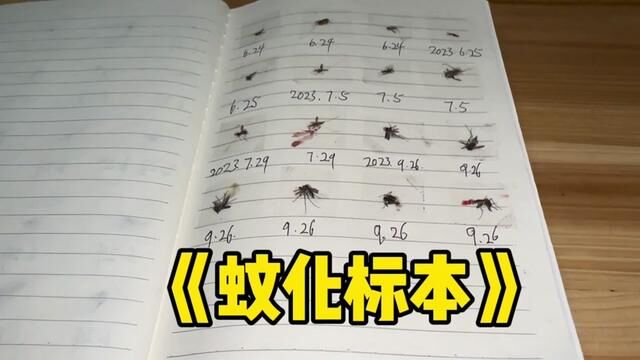 6.24 6.24 6.24 2023.6.25
6.25 2023.7.5 7.5 7.5
2023.7.29 7.29 2023.9.26 9.26
9.26 9.26 9.26 9.26
《蚊化标本》